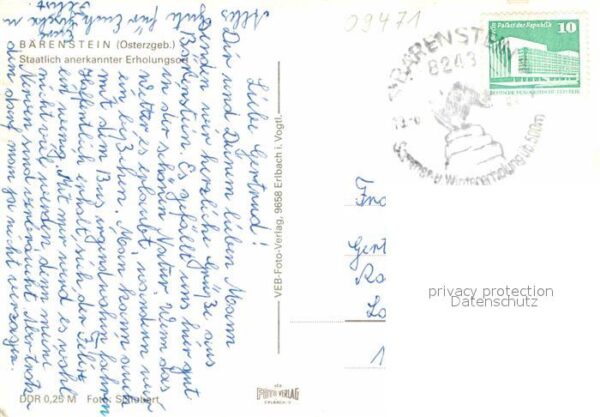 BÄRENSTEIN (Osterzgeb.)
Staatlich anerkannter Erholungsort
09471
BÄRENSTEIN
8243
Sommer- u. Wintererholung bis 500m
Palast der Republik
10
DEUTSCHE DEMOKRATISCHE REPUBLIK
Liebe Gertrud!
Dir und Deinem lieben Mann
senden wir herzliche Grüße aus
Bärenstein. Es gefällt uns hier gut
in der schönen Natur. Wenn das
Wetter es erlaubt, wandern wir
ein bißchen. Man kann auch
mit dem Bus irgendwohin fahren
Hoffentlich erholt sich der Felix
ein wenig. Mit mir wird es wohl
nicht viel werden denn meine
Nerven sind verbraucht. Aber trotz-
dem darf man ja nicht verzagen.
Alles
Gute für Euch
VEB-Foto-Verlag, 9658 Erlbach i. Vogtl.
Fra
Gert
Ro
Lo
1
privacy protection
Datenschutz
DDR 0,25 M Foto: Schubert
VEB
FOTO VERLAG
ERLBACH V